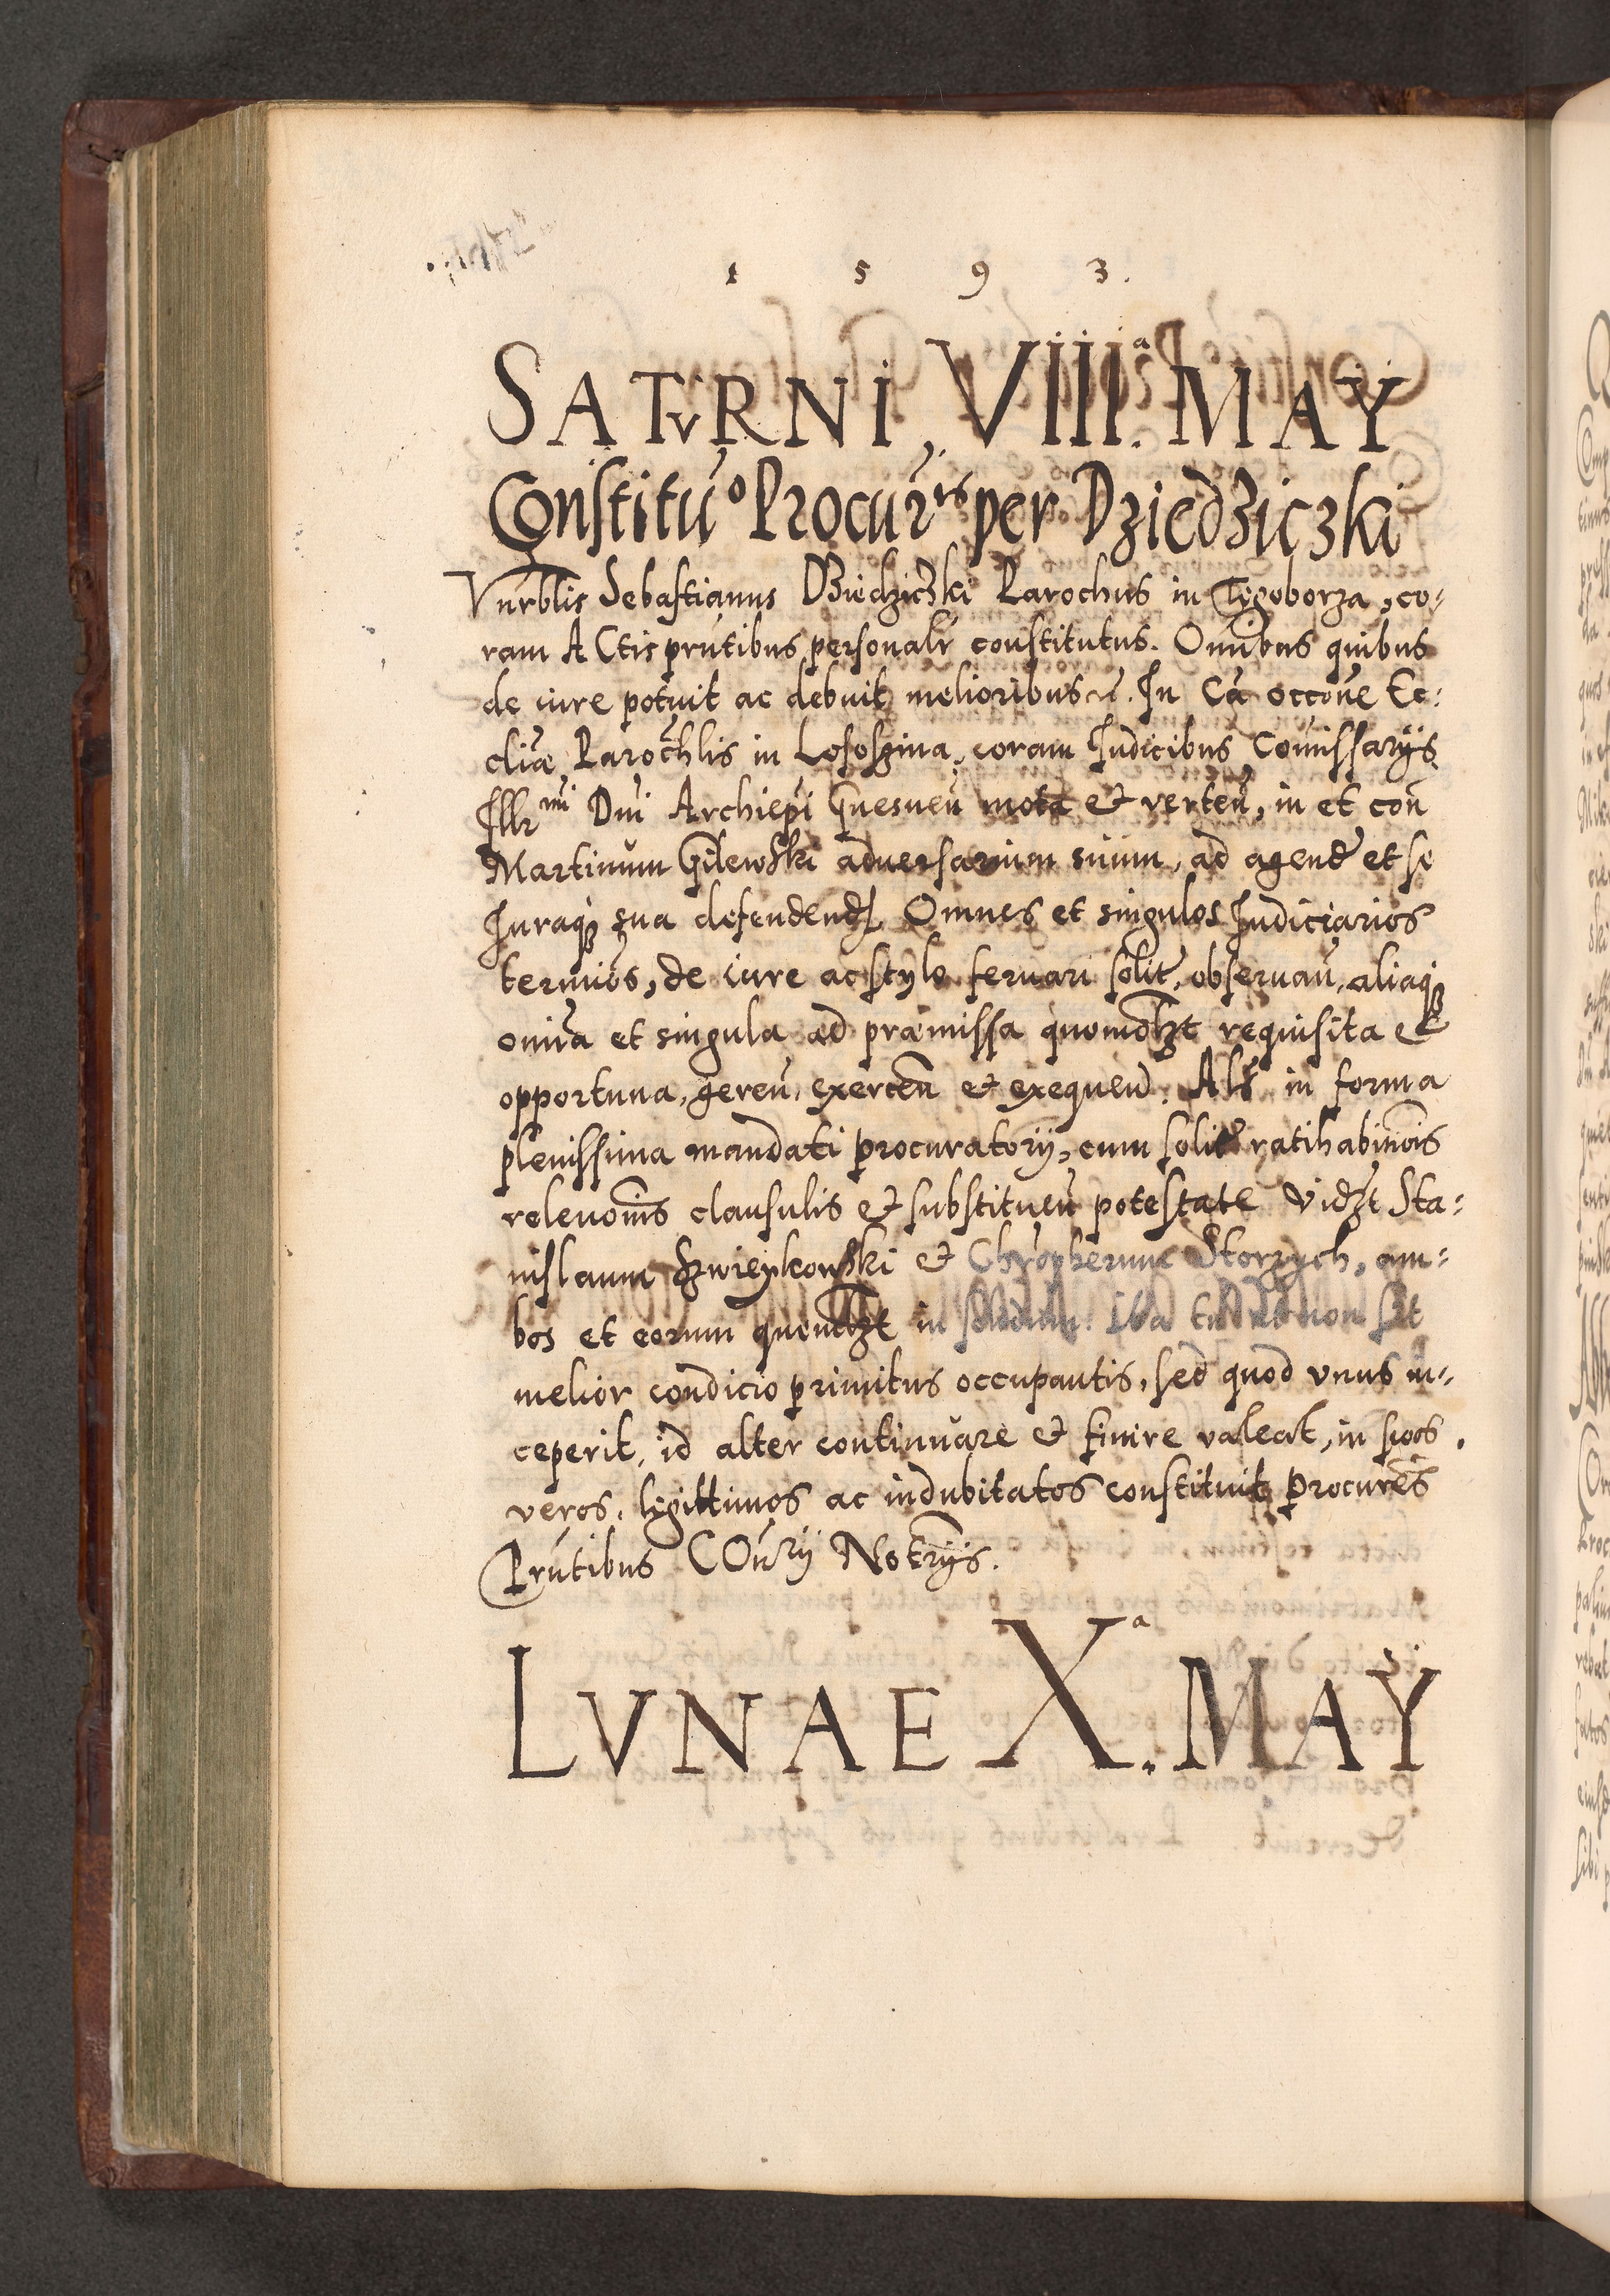 1 5 9 3.
SATVRNI, VIII.ª MAY
Constitũo Procurrs per Dziedziczki
Vnrblis Sebastianus Dziedziczki Parochus in Tęgoborza, co-
ram ACtis prñtibus personalr constitutus. Omnibus quibus
de iure potuit ac debuit melioribus etc. In Cã occõne Ec-
cliæ Parochlis in Lososzina, coram Iudicibus Comissarijs
Illrmi Dni Archiepi Gnesneñ mota et verteñ, in et coñ
Martinum Gilewski aduersarium suum, ad agend et se
Iuraq₃ sua defendend, Omnes et singulos Iudiciarios
termios, de iure ac stylo seruari solit, obseruañ, aliaq₃
omĩa et singula ad præmissa quomodlzt requisita et
opportuna, gereñ, exerceñ et exequend. Alr in forma
plenissima mandati procuratorij, cum solit ratihabitiõis
releuoñis clausulis et substitueñ potestate Vidzt Sta-
nislaum Szwieykowski et Chrõpherum Storzych, am-
bos et eorum quemlzt in solidum. Ita tñ ut non sit
melior condicio primitus occupantis, sed quod vnus in-
ceperit, id alter continuare et finire valeat, in suos
veros, legittimos ac indubitatos constituit Procures
Prñtibus COñrij Notrijs.
LVNAE X.ª MAY